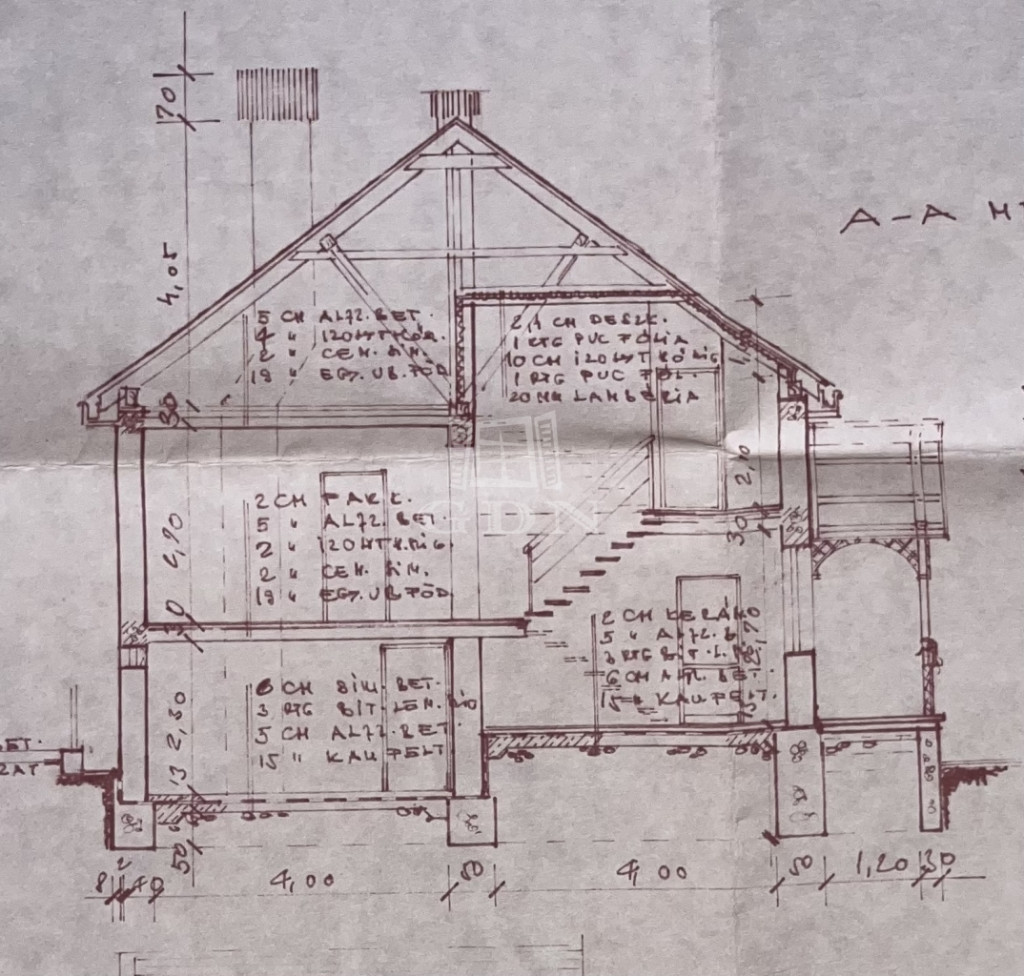 70
4,05
A-A M
5 CM ALJZ. BET.
4 " IZO
2 " CEM. SIM.
19 " EGY. UB. FÖD
2,4 CM DESZK.
1 RTG PVC FÓLIA
10 CM
1 RTG PVC FÓL.
20 MM LAMBÉRIA
30
GDN
2 CM PARK.
5 " ALJZ. BET.
2 "
2 " CEM. SIM.
19 " EGY. UB. FÖD
2,10
30
30
2 CM
5 " ALJZ. B
3 RTG BIT. L.
6 CM ALJZ. BET.
15 " KAV FELT.
6 CM SIM. BET.
3 RTG BIT. LEM.
5 CM ALJZ. BET
15 " KAV FELT
2,30
13
50
8 2 40 4,00 50 4,00 50 1,20 30